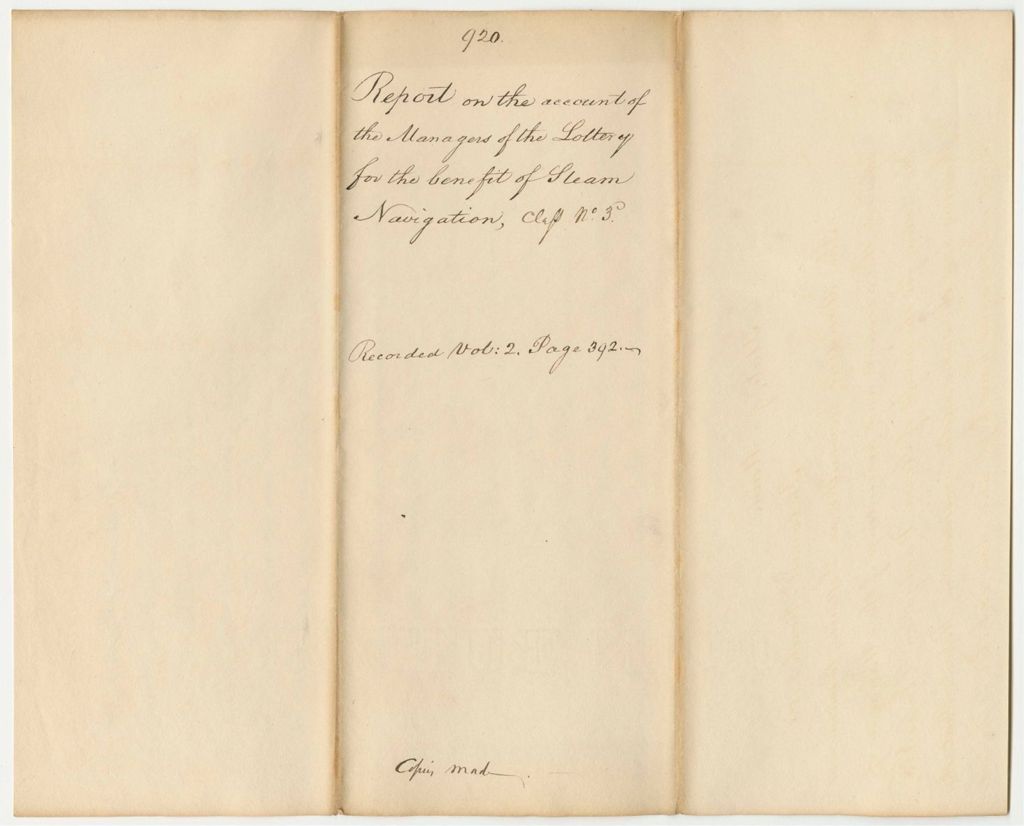 920.
Report on the account of
the Managers of the Lottery
for the benefit of Steam
Navigation, Claſs Nº. 3.
Recorded Vol: 2. Page 392.
Copies made.